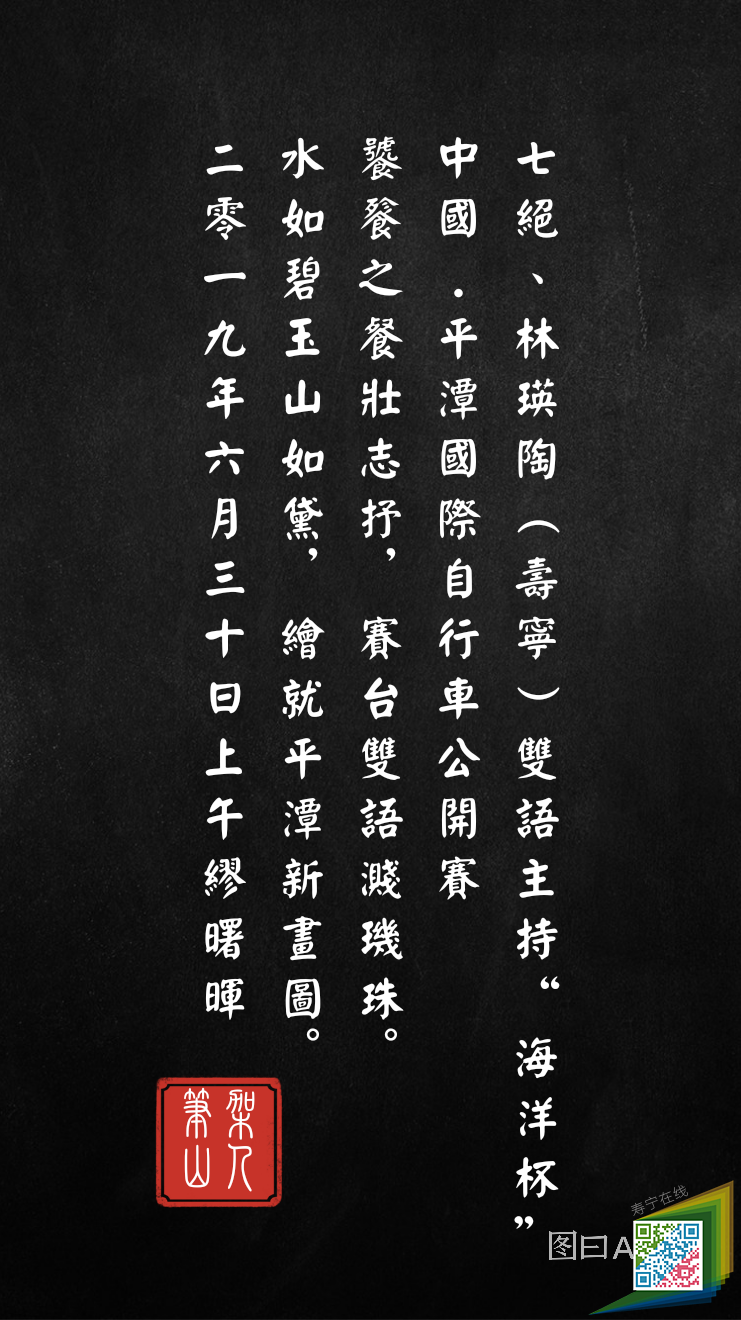 七絕、林瑛陶（壽寧）雙語主持“海洋杯”
中國．平潭國際自行車公開賽
饕餮之餐壯志抒，賽台雙語濺璣珠。
水如碧玉山如黛，繪就平潭新畫圖。
二零一九年六月三十日上午繆曙暉
筆山
寿宁在线
图曰A